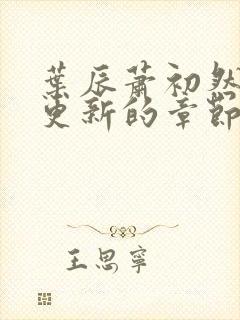 葉辰蕭初然
更新的章節
王思寧